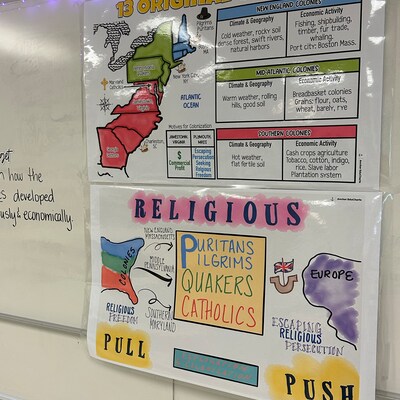 13 ORIGINAL
Pilgrims
Puritans
NEW ENGLAND COLONIES
Climate & Geography
Economic Activity
Cold weather, rocky soil
Dense forest, swift rivers,
natural harbors
Fishing, shipbuilding,
timber, fur trade,
whaling.
Port city: Boston Mass.
MID-ATLANTIC COLONIES
Climate & Geography
Economic Activity
Warm weather, rolling
hills, good soil
Breadbasket colonies
Grains: flour, oats,
wheat, barely, rye
SOUTHERN COLONIES
Climate & Geography
Economic Activity
Hot weather,
flat fertile soil
Cash crops agriculture
Tobacco, cotton, indigo,
rice. Slave labor
Plantation system
ATLANTIC
OCEAN
Maryland
Catholics
New York City
Charleston,
SC
Motives for Colonization
JAMESTOWN
VIRGINIA
PLYMOUTH
MASS.
$
Commercial
Profit
Escaping
Persecution
Seeking
Religious
Freedom
how the
developed
economically.
RELIGIOUS
COLONIES
NEW ENGLAND
MASSACHUSETTS
MIDDLE
PENNSYLVANIA
SOUTHERN
MARYLAND
RELIGIOUS
FREEDOM
PURITANS
PILGRIMS
QUAKERS
CATHOLICS
EUROPE
ESCAPING
RELIGIOUS
PERSECUTION
PULL
PUSH